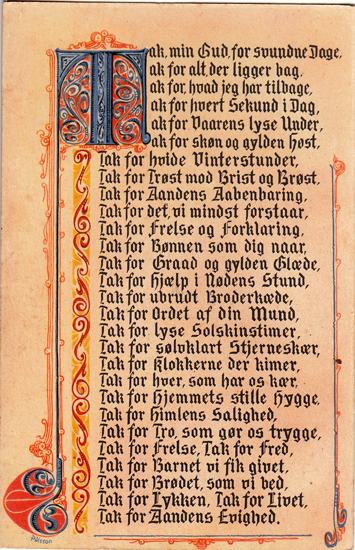 Tak, min Gud, for svundne Dage,
Tak for alt, der ligger bag,
Tak for, hvad jeg har tilbage,
Tak for hvert Sekund i Dag,
Tak for Vaarens lyse Under,
Tak for skøn og gylden Høst,
Tak for hvide Vinterstunder,
Tak for Trøst mod Brist og Brøst,
Tak for Aandens Aabenbaring,
Tak for det, vi mindst forstaar,
Tak for Frelse og Forklaring,
Tak for Bønnen som dig naar,
Tak for Graad og gylden Glæde,
Tak for Hjælp i Nødens Stund,
Tak for ubrudt Broderkæde,
Tak for Ordet af din Mund,
Tak for lyse Solskinstimer,
Tak for sølvklart Stjerneskær,
Tak for Klokkerne der kimer,
Tak for hver, som har os kær,
Tak for Hjemmets stille Hygge,
Tak for Himlens Salighed,
Tak for Tro, som gør os trygge,
Tak for Frelse, Tak for Fred,
Tak for Barnet vi fik givet,
Tak for Brødet, som vi bed,
Tak for Lykken, Tak for Livet,
Tak for Aandens Evighed.